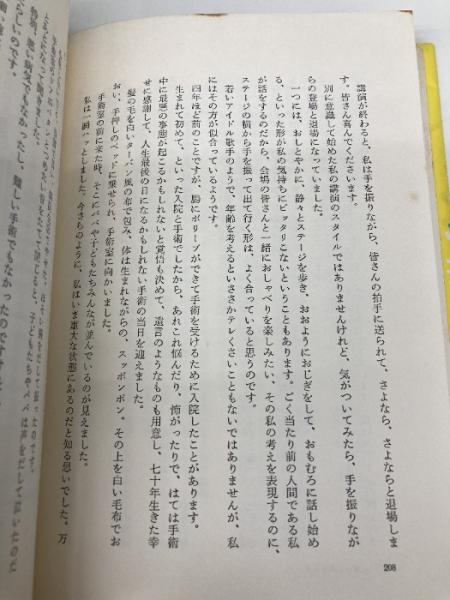 講演が終わると、私は手を振りながら、皆さんの拍手に送られて、さよなら、さよならと退場しま
す。皆さん喜んでくださいます。
別に意識して始めた私の講演のスタイルではありませんけれど、気がついてみたら、手を振りなが
らの登場と退場になっていました。
一つには、おしとやかに、静々とステージを歩き、おおようにおじぎをして、おもむろに話し始め
る、といった形が私の気持ちにピッタリこないということもあります。ごく当たり前の人間である私
が話をするのだから、会場の皆さんと一緒におしゃべりを楽しみたい、その私の考えを表現するのに、
ステージの横から手を振って出て行く形は、よく合っていると思うのです。
若いアイドル歌手のようで、年齢を考えるといささかテレくさいこともないではありませんが、私
にはその方が似合っているようです。
四年ほど前のことですが、腸にポリープができて手術を受けるために入院したことがあります。
生まれて初めて、といった入院と手術でしたから、あれこれ悩んだり、怖がったりで、はては手術
中に最悪の事態が起こるかもしれないと覚悟も決めて、遺言のようなものも用意し、七十年生きた幸
せに感謝して、人生最後の日になるかもしれない手術の当日を迎えました。
髪の毛を白いターバン風の布で包み、体は生まれながらの、スッポンポン。その上を白い毛布でお
おい、手押しのベッドに乗せられ、手術室に向かいました。
手術室の前に来た時、そこにパパや子どもたちみんなが並んでいるのが見えました。
私は一瞬ハッとしました。今さらのように、私はいま重大な状態にあるのだと知る思いでした。万
208